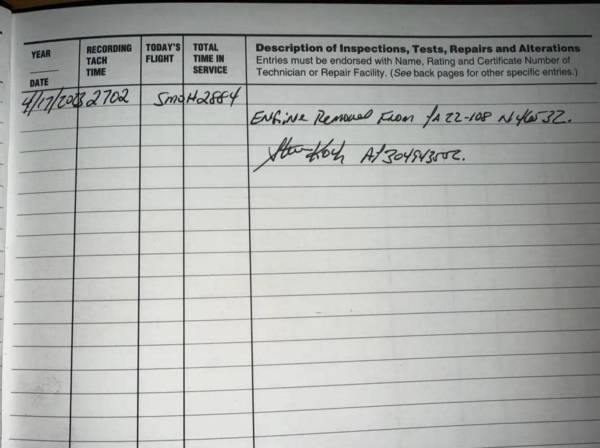 YEAR
DATE
RECORDING
TACH
TIME
TODAY'S
FLIGHT
TOTAL
TIME IN
SERVICE
Description of Inspections, Tests, Repairs and Alterations
Entries must be endorsed with Name, Rating and Certificate Number of
Technician or Repair Facility. (See back pages for other specific entries.)
2702 SMOH2884
Engine Removed From PA22-108
Steve Koch AP